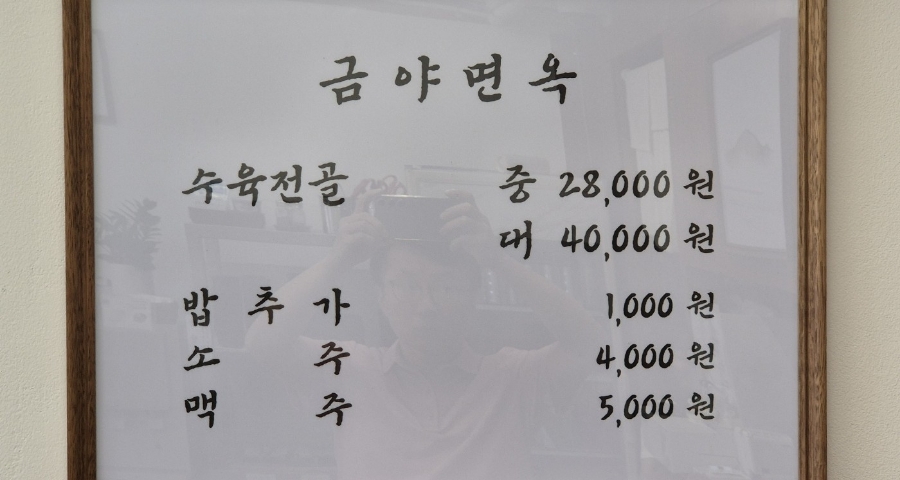 금야면옥
수육전골 중 28,000 원
대 40,000 원
밥 추 가 1,000 원
소 주 4,000 원
맥 주 5,000 원